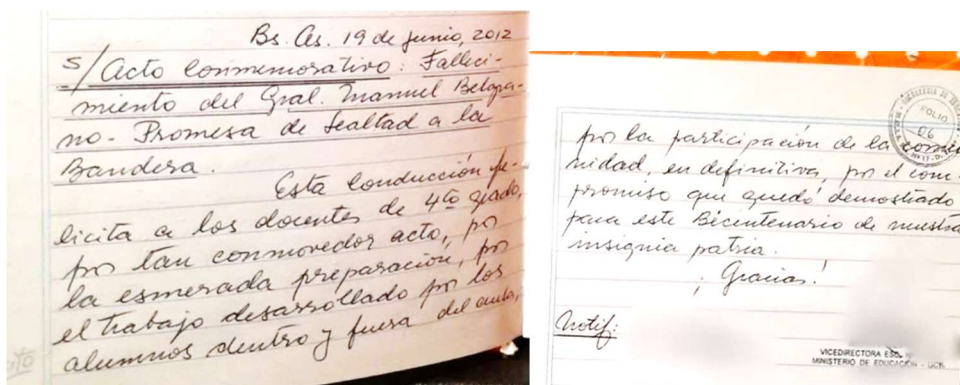 Bs. As. 19 de junio, 2012
S/Acto Conmemorativo: Falleci-
miento del Gral. Manuel Belgra-
no - Promesa de Lealtad a la
Bandera.
Esta Conducción fe-
licita a los docentes de 4to grado,
por tan conmovedor acto, por
la esmerada preparación, por
el trabajo desarrollado por los
alumnos dentro y fuera del aula,
por la participación de la comu
nidad, en definitiva, por el com-
promiso que quedó demostrado
para este Bicentenario de nuestra
insignia patria.
¡Gracias!
Notif:
FOLIO
06
VICEDIRECTORA ESC.
MINISTERIO DE EDUCACIÓN - GCB